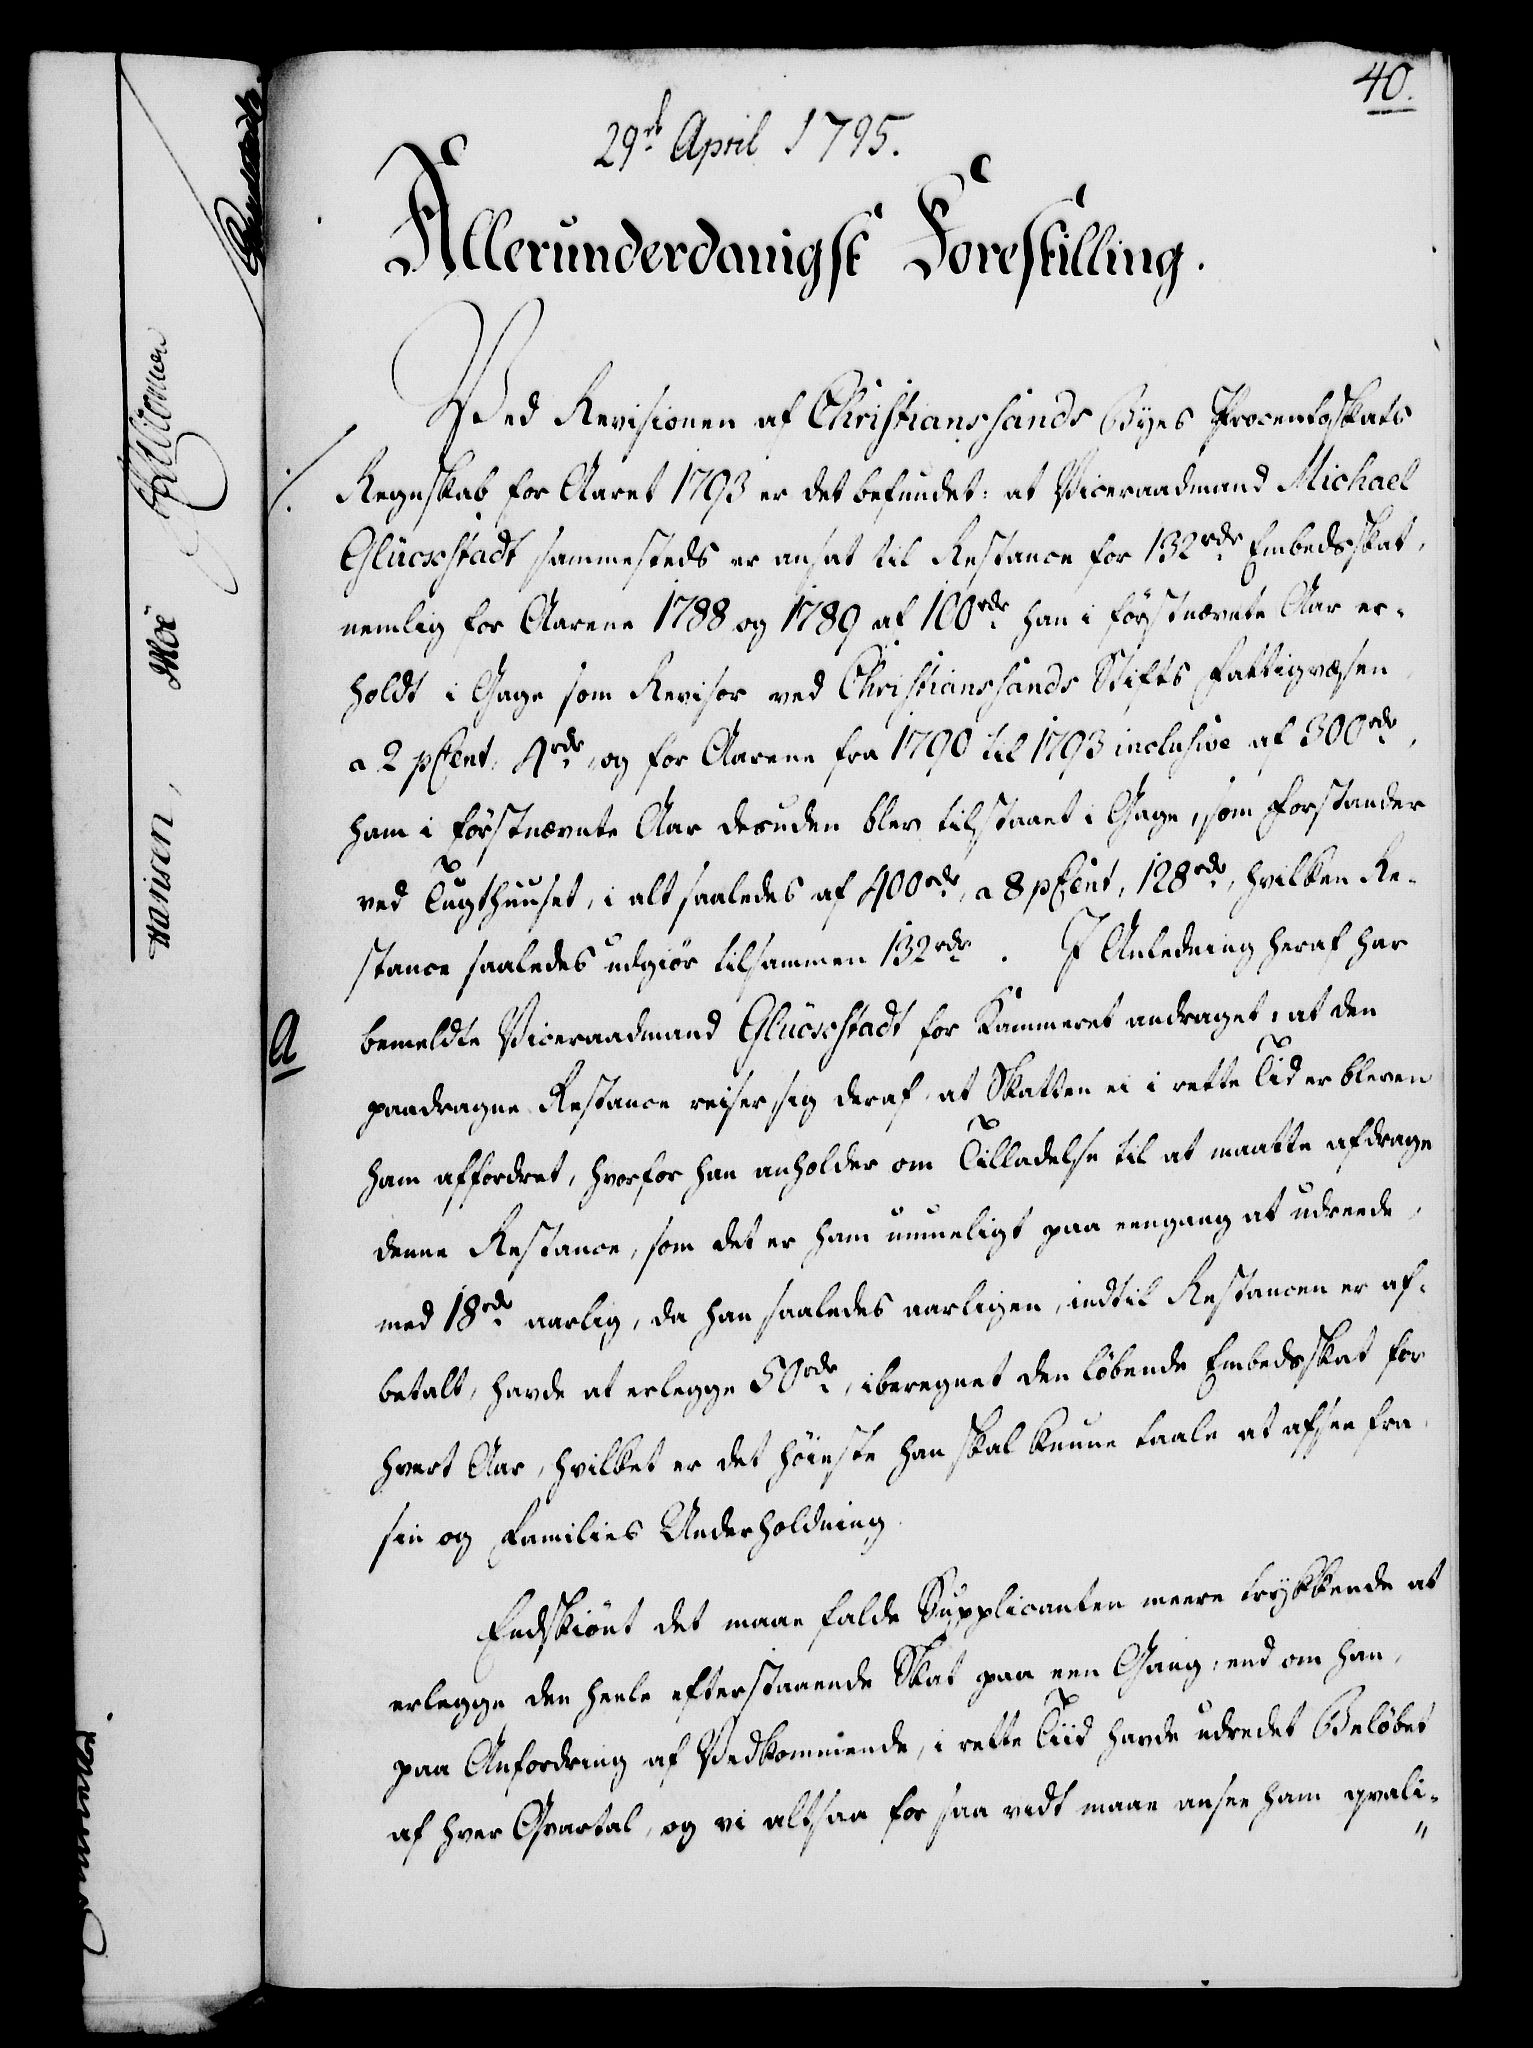 40.
29de April 1795.
Allerunderdanigst Forestilling.
Ved Revisionen af Christianssands Byes Procentoskats
Regnskab for Aaret 1793 er det befundet: at Viceraadmand Michael
Glückstadt sammesteds er ansat til Restance for 132rdr Embedsskat,
nemlig for Aarene 1788 og 1789 af 100rdr han i förstnævnte Aar er-
holdt i Gage som Revisor ved Christianssands Stifts Fattigvæsen
a 2 pCent, 4rdr, og for Aarene fra 1790 til 1793 inclusive af 300rdr,
ham i förstnævnte Aar desuden blev tilstaaet i Gage, som Forstander
ved Tugthuuset, i alt saaledes af 400rdr, a 8 pCent, 128rdr, hvilken Re-
stance saaledes udgiör tilsammen 132rdr. I Anledning heraf har
A
bemeldte Viceraadmand Glückstadt for Kammeret andraget: at den
paadragne Restance reiser sig deraf, at Skatten ei i rette Tid er bleven
ham affordret, hvorfor han anholder om Tilladelse til at maatte afdrage
denne Restance, som det er ham umueligt paa eengang at udreede,
med 18rdr aarlig, da han saaledes aarligen, indtil Restancen er af-
betalt, havde at erlegge 50rdr, iberegnet den löbende Embedsskat for
hvert Aar, hvilket er det höieste han skal kunne taale at afsee fra
sin og Families Underholdning.
Endskiönt det maae falde Supplicanten meere trykkende at
erlegge den heele efterstaaende Skat paa een Gang, end om han,
paa Anfordring af Vedkommende, i rette Tiid havde udredet Belöbet
af hver Qvartal, og vi altsaa for saa vidt maae ansee ham qvali-
Hansen,
Moe